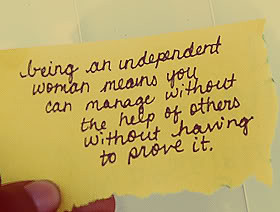 being an independent
woman means you
can manage without
the help of others
without having
to prove it.